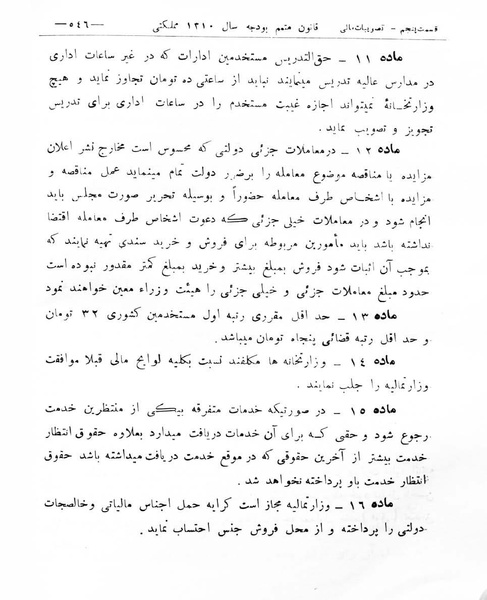 قسمت پنجم - تصویبات مالی    قانون متمم بودجه سال ۱۳۱۰ مملکتی    —۵۴۶—
ماده ۱۱ – حق‌التدریس مستخدمین ادارات که در غیر ساعات اداری
در مدارس عالیه تدریس مینمایند نباید از ساعتی ده تومان تجاوز نماید و هیچ
وزارتخانهٔ نمیتواند اجازه غیبت مستخدم را در ساعات اداری برای تدریس
تجویز و تصویب نماید .
ماده ۱۲ – درمعاملات جزئی دولتی که محسوس است مخارج نشر اعلان
مزایده یا مناقصه موضوع معامله را برضرر دولت تمام مینماید عمل مناقصه و
مزایده با اشخاص طرف معامله حضوراً و بوسیله تحریر صورت مجلس باید
انجام شود و در معاملات خیلی جزئی که دعوت اشخاص طرف معامله اقتضا
نداشته باشد باید مأمورین مربوطه برای فروش و خرید سندی تهیه نمایند که
بموجب آن اثبات شود فروش بمبلغ بیشتر وخرید بمبلغ کمتر مقدور نبوده است
حدود مبلغ معاملات جزئی و خیلی جزئی را هیئت وزراء معین خواهند نمود
ماده ۱۳ – حد اقل مقرری رتبه اول مستخدمین کشوری ۳۲ تومان
و حد اقل رتبه قضائی پنجاه تومان میباشد.
ماده ۱۴ – وزارتخانه ها مکلفند نسبت بکلیه لوایح مالی قبلا موافقت
وزارتمالیه را جلب نمایند .
ماده ۱۵ – در صورتیکه خدمات متفرقه بیکی از منتظرین خدمت
رجوع شود و حقی که برای آن خدمات دریافت میدارد بعلاوه حقوق انتظار
خدمت بیشتر از آخرین حقوقی که در موقع خدمت دریافت میداشته باشد حقوق
انتظار خدمت باو پرداخته نخواهد شد.
ماده ۱۶ – وزارتمالیه مجاز است کرایه حمل اجناس مالیاتی وخالصجات
دولتی را پرداخته و از محل فروش جنس احتساب نماید .